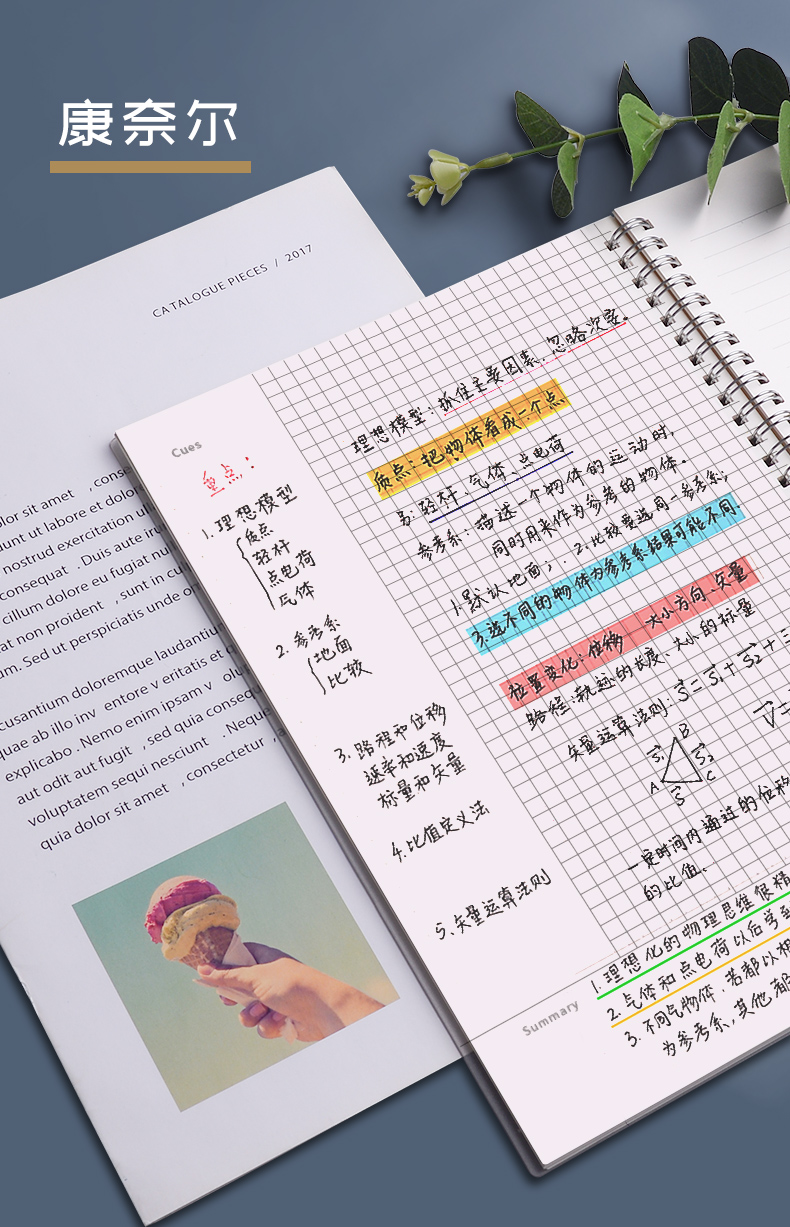 康奈尔
CATALOGUE PIECES / 2017
lor sit amet , conse
dunt ut labore et dolor
nostrud exercitation ul
consequat . Duis aute iru
cillum dolore eu fugiat nu
at non proident , sunt in cul
um. Sed ut perspiciatis unde o
cusantium doloremque laudantiu
quae ab illo inv entore v eritatis et q
explicabo . Nemo enim ipsam v olu
aut odit aut fugit , sed quia conseq
voluptatem sequi nesciunt . Nequ
quia dolor sit amet , consectetur , a
Cues
重点：
1.理想模型
质点
轻杆
点电荷
气体
2.参考系
地面
比较
3.路程和位移
速率和速度
标量和矢量
4.比值定义法
5.矢量运算法则
理想模型：抓住主要因素、忽略次要。
质点：把物体看成一个点
轻杆、气体、点电荷
参考系：描述一个物体的运动时，
同时用来作为参考的物体。
1.默认地面； 2.比较要选同一参考系；
3.选不同的物体为参考系结果可能不同.
位置变化：位移 大小方向、矢量
路程：轨迹的长度、大小的标量
矢量运算法则：S=S1+S2+
B
S1 S2
A C
S
V=
一定时间内通过的位移
的比值.
Summary
1.理想化的物理思维很精
2.气体和点电荷以后学到
3.不同气物体.若都以相
为参考系,其他都